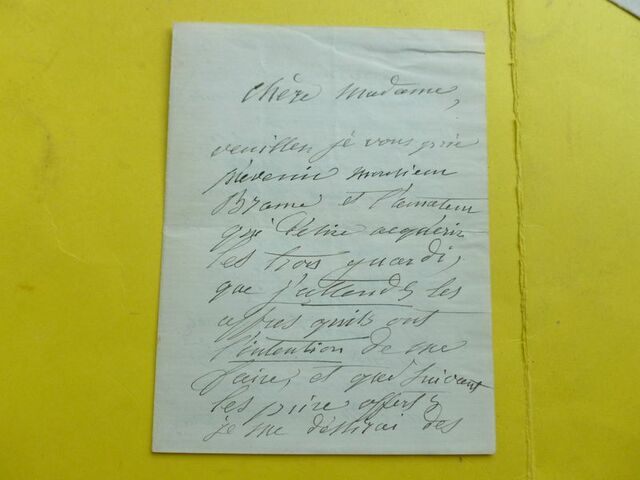 chère madame,
veuillez je vous prie
prévenir monsieur
Brame et l'amateur
qui désire acquérir
les trois guardi,
que j'attends les
offres quils ont
l'intention de me
faire, et que suivant
les prix offerts
je me déferai des